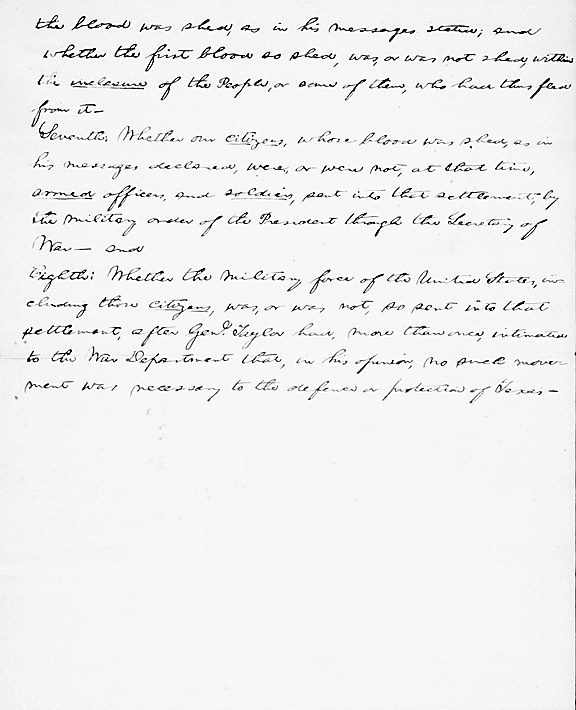 the blood was shed, as in his messages stated; and
whether the first blood so shed, was, or was not shed, within
the inclosure of the People, or some of them, who had thus fled
from it—
Seventh: Whether our citizens, whose blood was shed, as in
his messages declared, were, or were not, at that time,
armed officers, and soldiers, sent into that settlement, by
the military order of the President through the Secretary of
War— and
Eighth: Whether the military force of the United States, in-
cluding those citizens, was, or was not, so sent into that
settlement, after Genl. Taylor had, more than once, intimated
to the War Department that, in his opinion, no such move-
ment was necessary to the defence or protection of Texas—